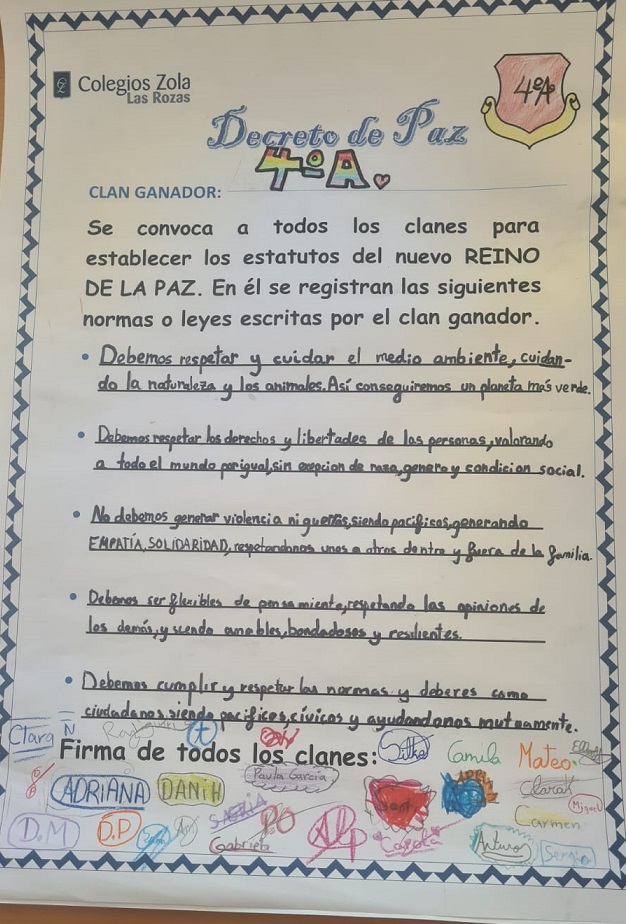 Colegios Zola
Las Rozas
4ºA
Decreto de Paz
4º A.
CLAN GANADOR:
Se convoca a todos los clanes para
establecer los estatutos del nuevo REINO
DE LA PAZ. En él se registran las siguientes
normas o leyes escritas por el clan ganador.
• Debemos respetar y cuidar el medio ambiente, cuidan-
do la naturaleza y los animales. Así conseguiremos un planeta más verde.
• Debemos respetar los derechos y libertades de las personas, valorando
a todo el mundo por igual, sin exepcion de raza, genero y condicion social.
• No debemos generar violencia ni guerras, siendo pacificos, generando
EMPATÍA, SOLIDARIDAD, respetandonos unos a otros dentro y fuera de la familia.
• Debemos ser flexibles de pensamiento, respetando las opiniones de
los demás, y siendo amables, bondadosos y resilientes.
• Debemos cumplir y respetar las normas y deberes como
ciudadanos, siendo pacificos, cívicos y ayudandonos mutuamente.
Clara Ñ
Firma de todos los clanes:
Silka Camila Mateo
ADRIANA DANI H Paula García Clara Miguel
D.M D.P SAERIA Gabriela Alp Carola Carmen
Arturo Sergio